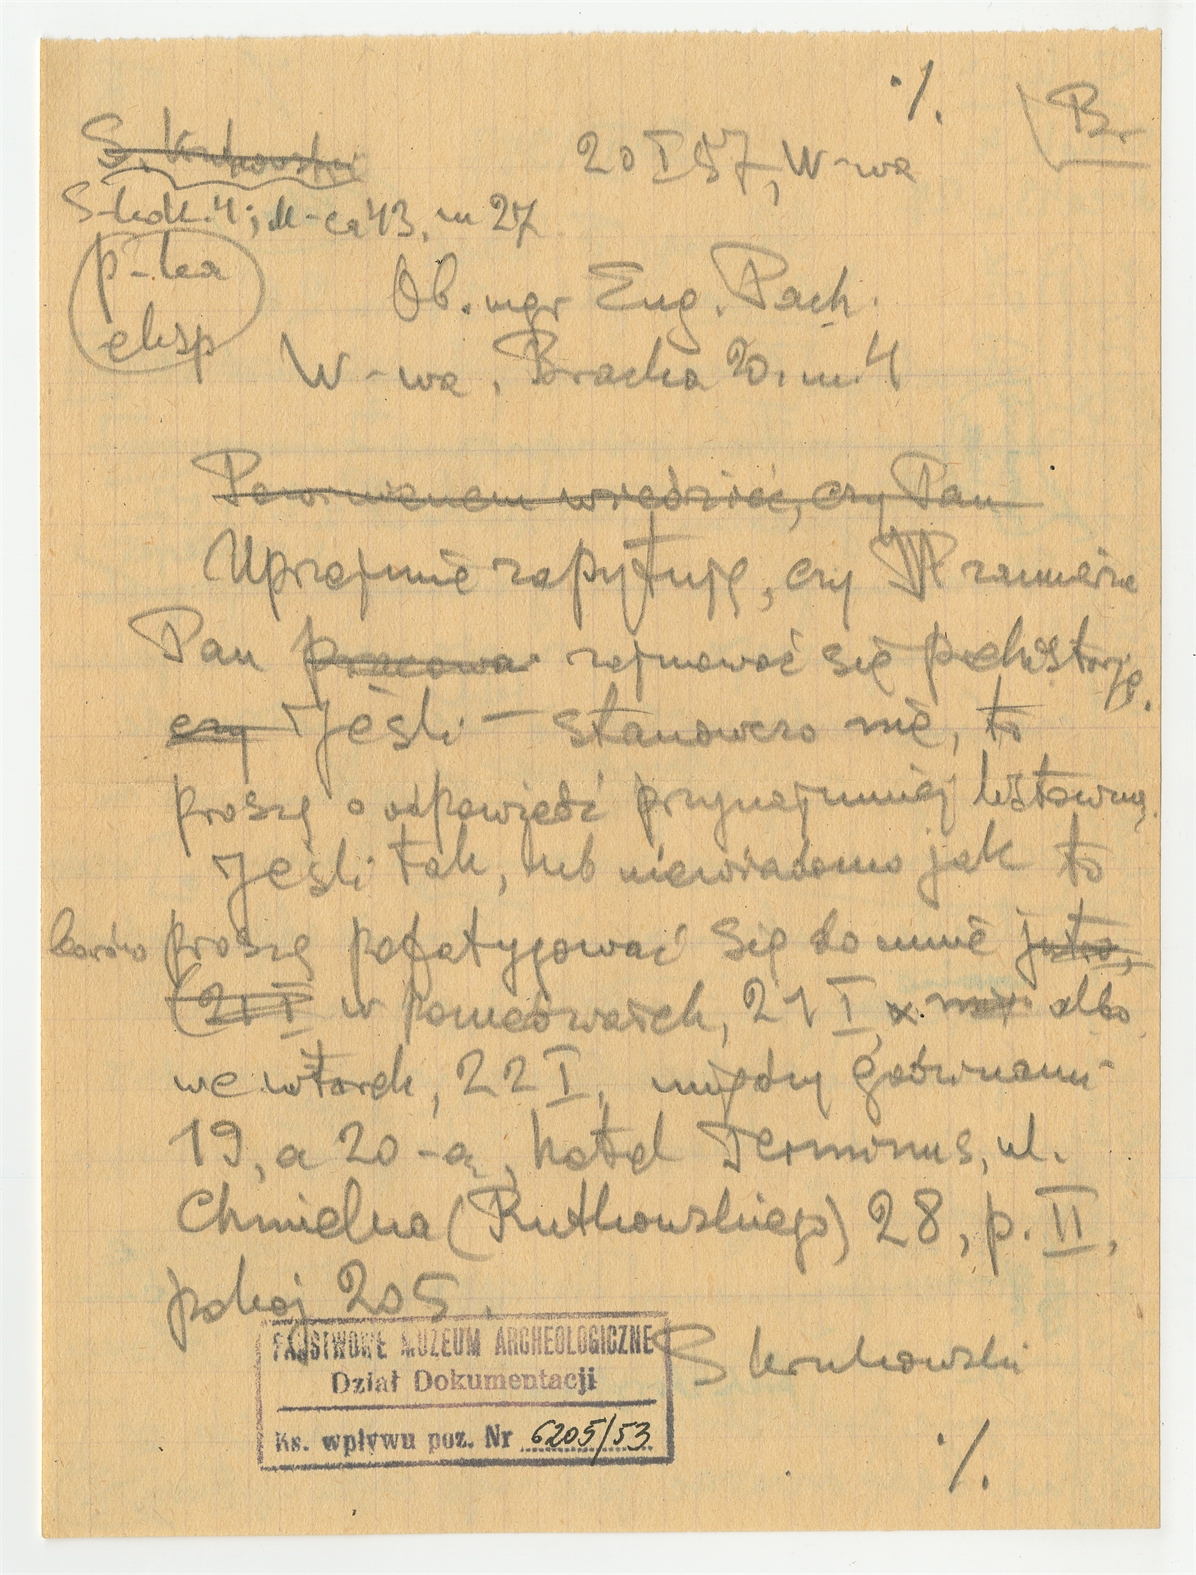 ·/.
Br
S. Krukowski
20 I 57, W-wa
S-kok. 4; M-ca 43, m 27
p-ka
eksp
Ob. mgr Eug. Pach.
W-wa, Bracka 20. m. 4
Powinienem wiedzieć, czy Pan
Uprzejmie zapytuję, czy zamierza
Pan pracowa zajmować się prehistorją.
czy Jeśli – stanowczo nie, to
proszę o odpowiedź przynajmniej listowną.
Jeśli tak, lub niewiadomo jak to
bardzo proszę pofatygować się do mnie jutro,
(21 I w poniedziałek, 21 I, albo
we wtorek, 22 I, między godzinami
19, a 20-ą, hotel Terminus, ul.
Chmielna (Rutkowskiego) 28, p. II,
pokój 205.
S Krukowski
PAŃSTWOWE MUZEUM ARCHEOLOGICZNE
Dział Dokumentacji
Ks. wpływu poz. Nr 6205/53
·/.